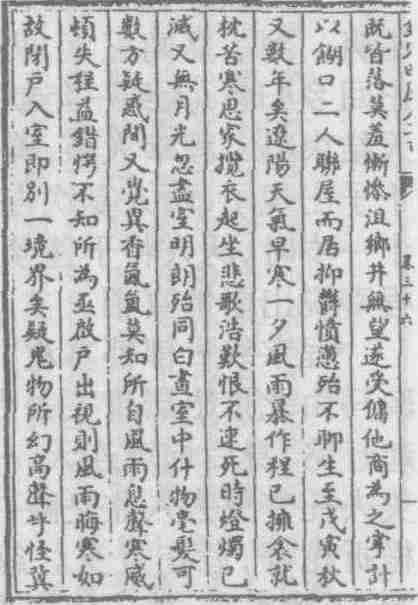 既皆落莫羞慚慘沮鄉井無望遂受傭他商為之掌計
以餬口二人聯屋而居抑鬱憤懣殆不聊生至戊寅秋
又數年矣遼陽天氣早寒一夕風雨暴作程已擁衾就
枕苦寒思家攬衣起坐悲歌浩歎恨不速死時燈燭已
滅又無月光忽盡室明朗殆同白晝室中什物毫髮可
數方疑惑間又覺異香氤氳莫知所自風雨息聲寒威
頓失程益錯愕不知所為亟啟戶出視則風雨晦寒如
故閉戶入室即別一境界矣疑鬼物所幻高聲呼怪冀